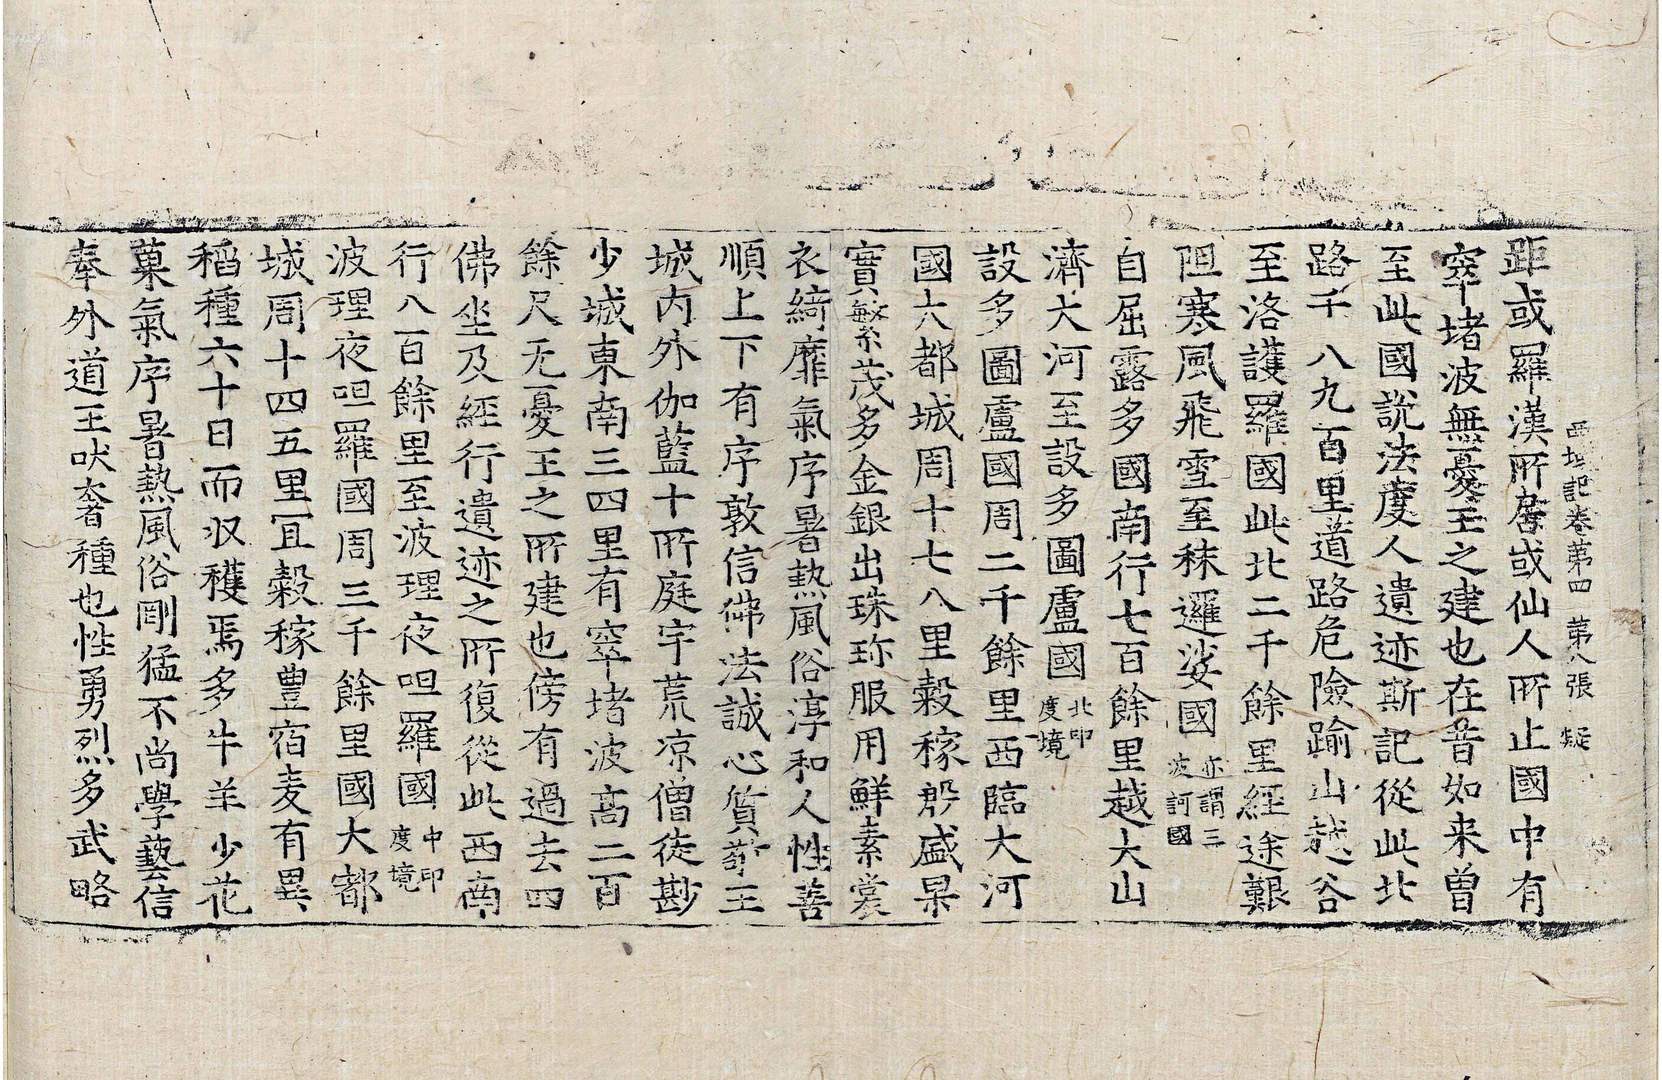 西域記卷第四 第八張 疑
距或羅漢所居或仙人所止國中有
窣堵波無憂王之建也在昔如来曾
至此國說法度人遺迹斯記從此北
路千八九百里道路危險踰山越谷
至洛護羅國此北二千餘里經途艱
阻寒風飛雪至秣邏娑國亦謂三波訶國
自屈露多國南行七百餘里越大山
濟大河至設多圖盧國北印度境
設多圖盧國周二千餘里西臨大河
國大都城周十七八里穀稼殷盛果
實繁茂多金銀出珠珎服用鮮素裳
衣綺靡氣序暑熱風俗淳和人性善
順上下有序敦信佛法誠心質敬王
城内外伽藍十所庭宇荒凉僧徒尠
少城東南三四里有窣堵波高二百
餘尺无憂王之所建也傍有過去四
佛坐及經行遺迹之所復從此西南
行八百餘里至波理夜呾羅國中印度境
波理夜呾羅國周三千餘里國大都
城周十四五里冝穀稼豊宿麦有異
稻種六十日而収穫焉多牛羊少花
菓氣序暑熱風俗剛猛不尚學藝信
奉外道王吠奢種也性勇烈多武略